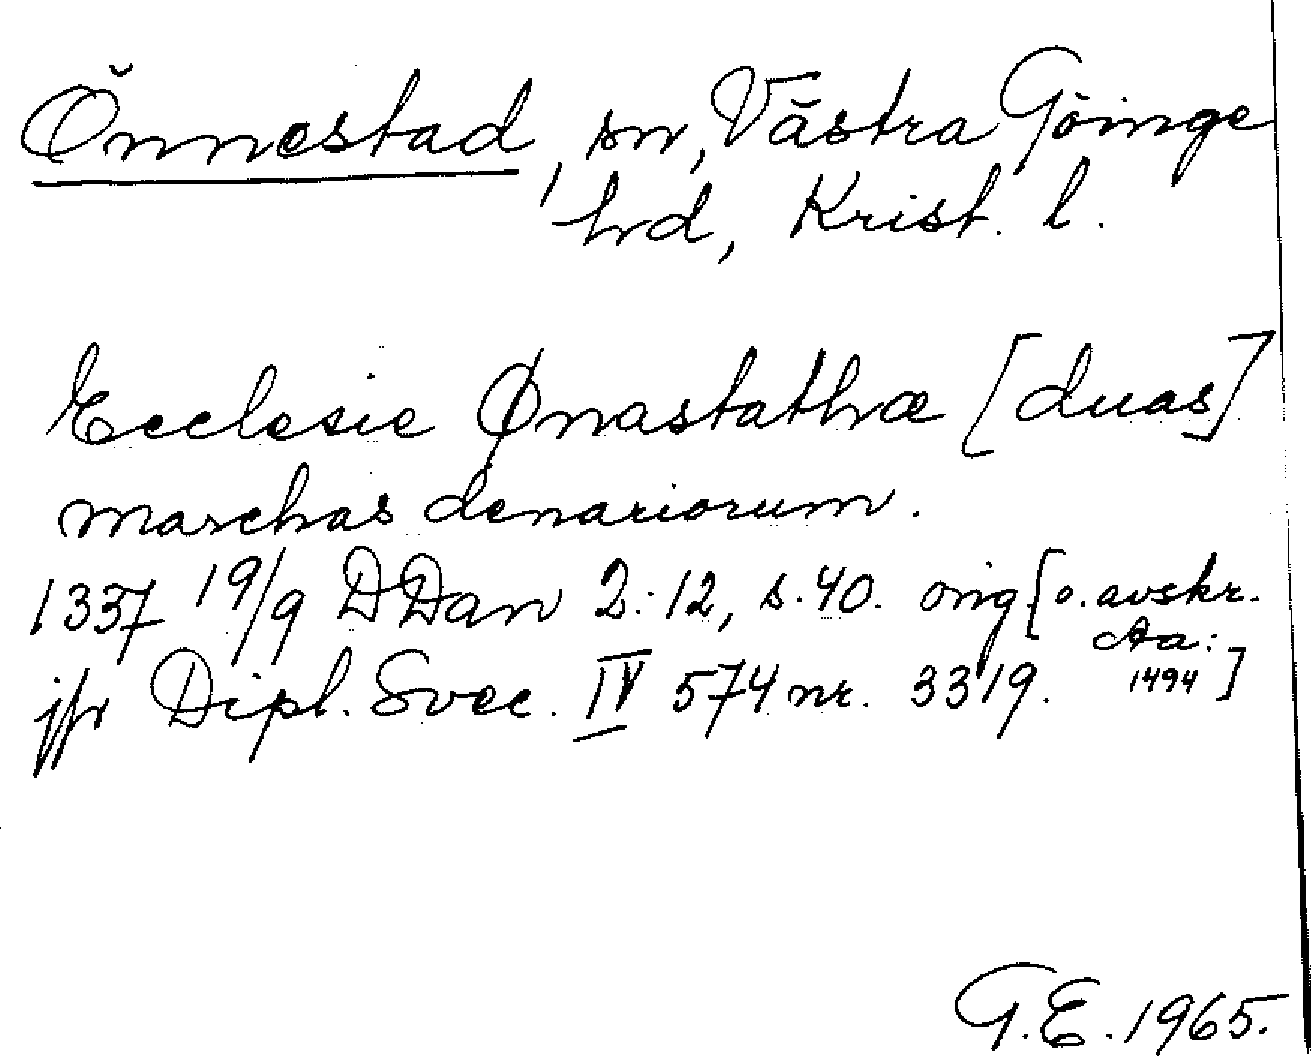 Önnestad, sn, Västra Göinge
hrd, Krist. l.
Ecclesie Ønastathæ [duas]
marchas denariorum.
1337 19/9 DDan 2:12, s. 40. orig [o. avskr.
Aa:
jfr Dipl. Svec. IV 574 nr. 3319. 1494]
G.E. 1965.